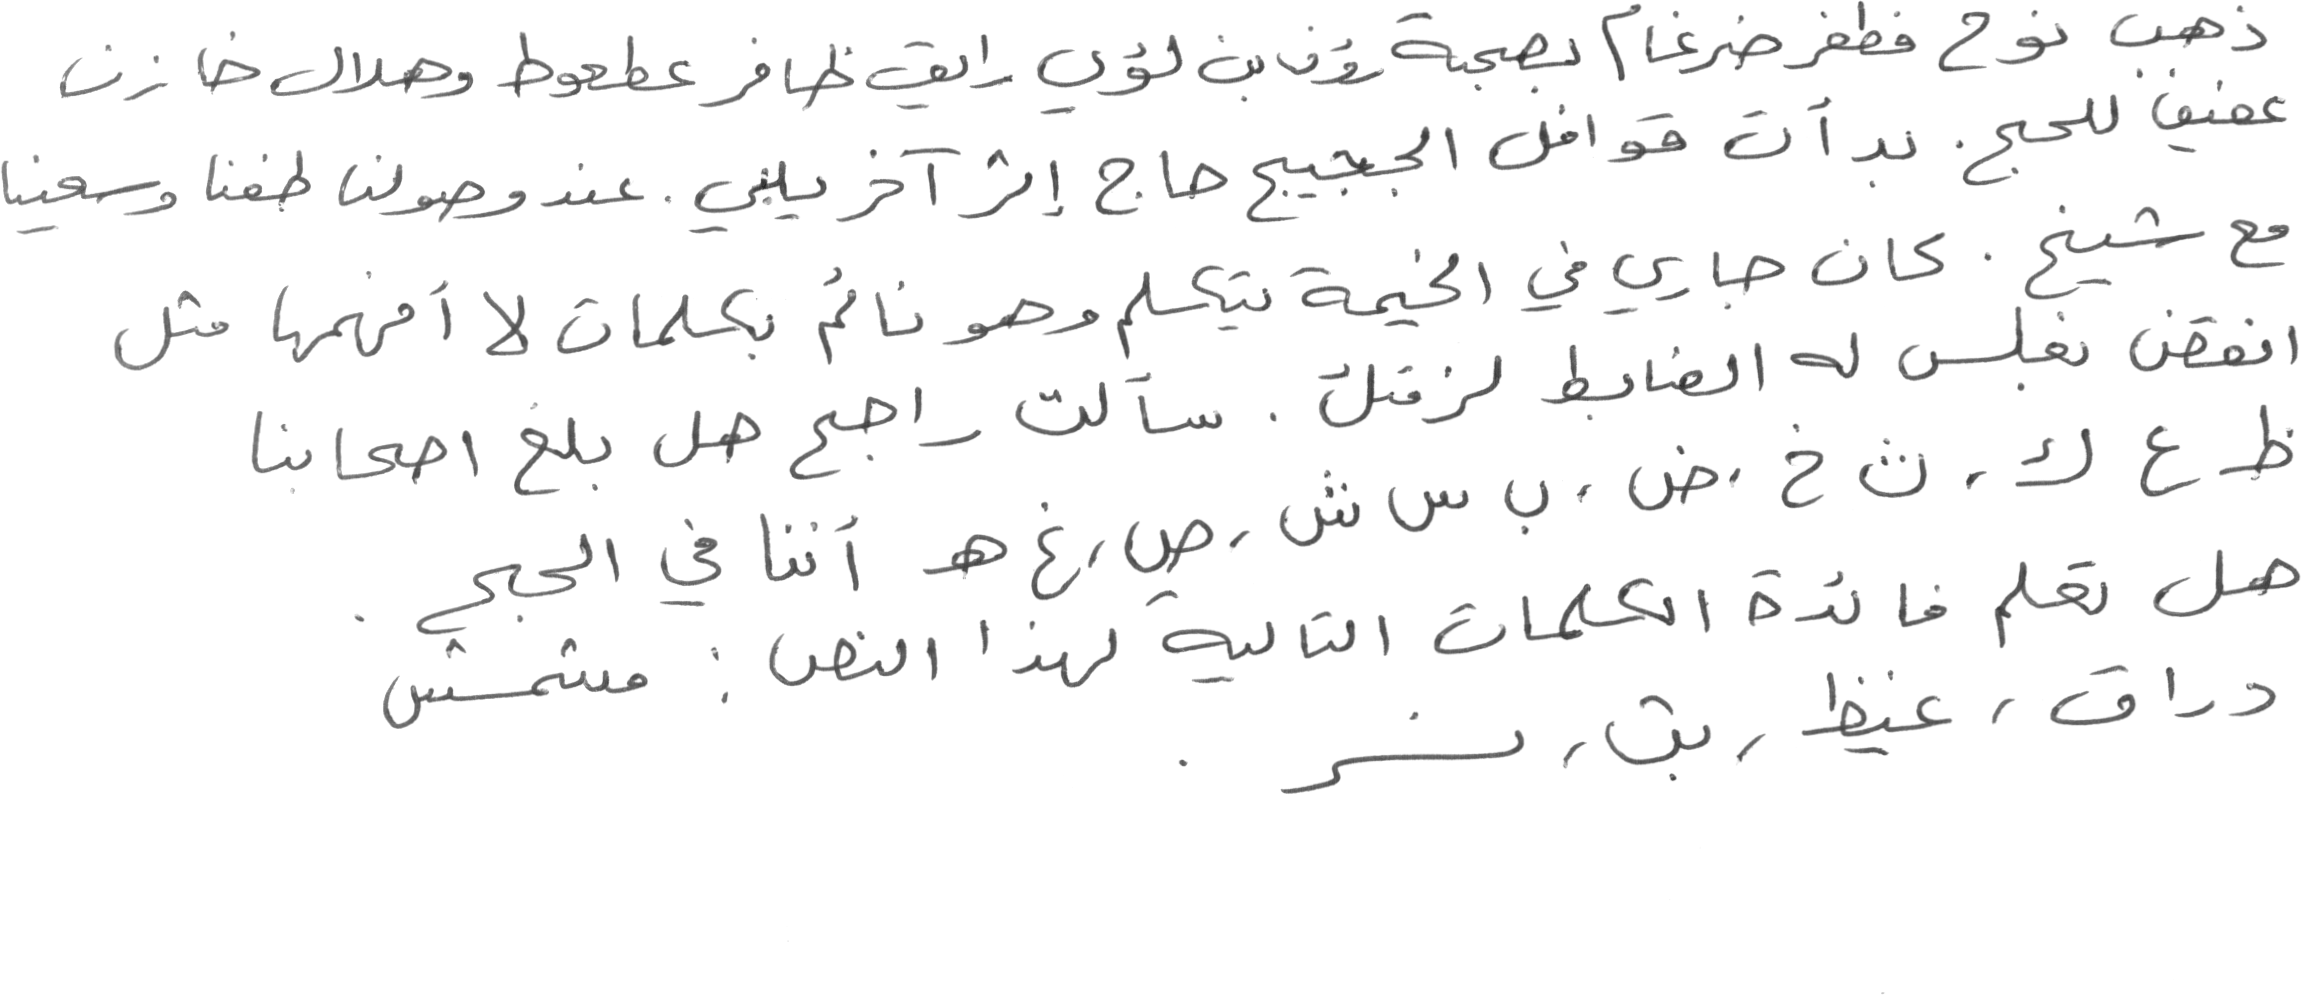 ذهب نوح فظفر ضرغام بصحبة رؤف بن لؤي رائق ظافر عطعوط وهلال خازن
عفيف للحج. بدأت قوافل الحجيج حاج إثر آخر يلبي. عند وصولنا طفنا وسعينا
مع شيخ. كان جاري في الخيمة يتكلم وهو نائم بكلمات لا أفهمها مثل
انفقض نغلس له الضابط لزقتك. سألت راجح هل بلغ اصحابنا
ظ ع ك، ث خ، ض، ب س ش، ص، غ ه أننا في الحج.
هل تعلم فائدة الكلمات التالية لهذا النص: مشمش
دراق، غيظ، بث، نر.